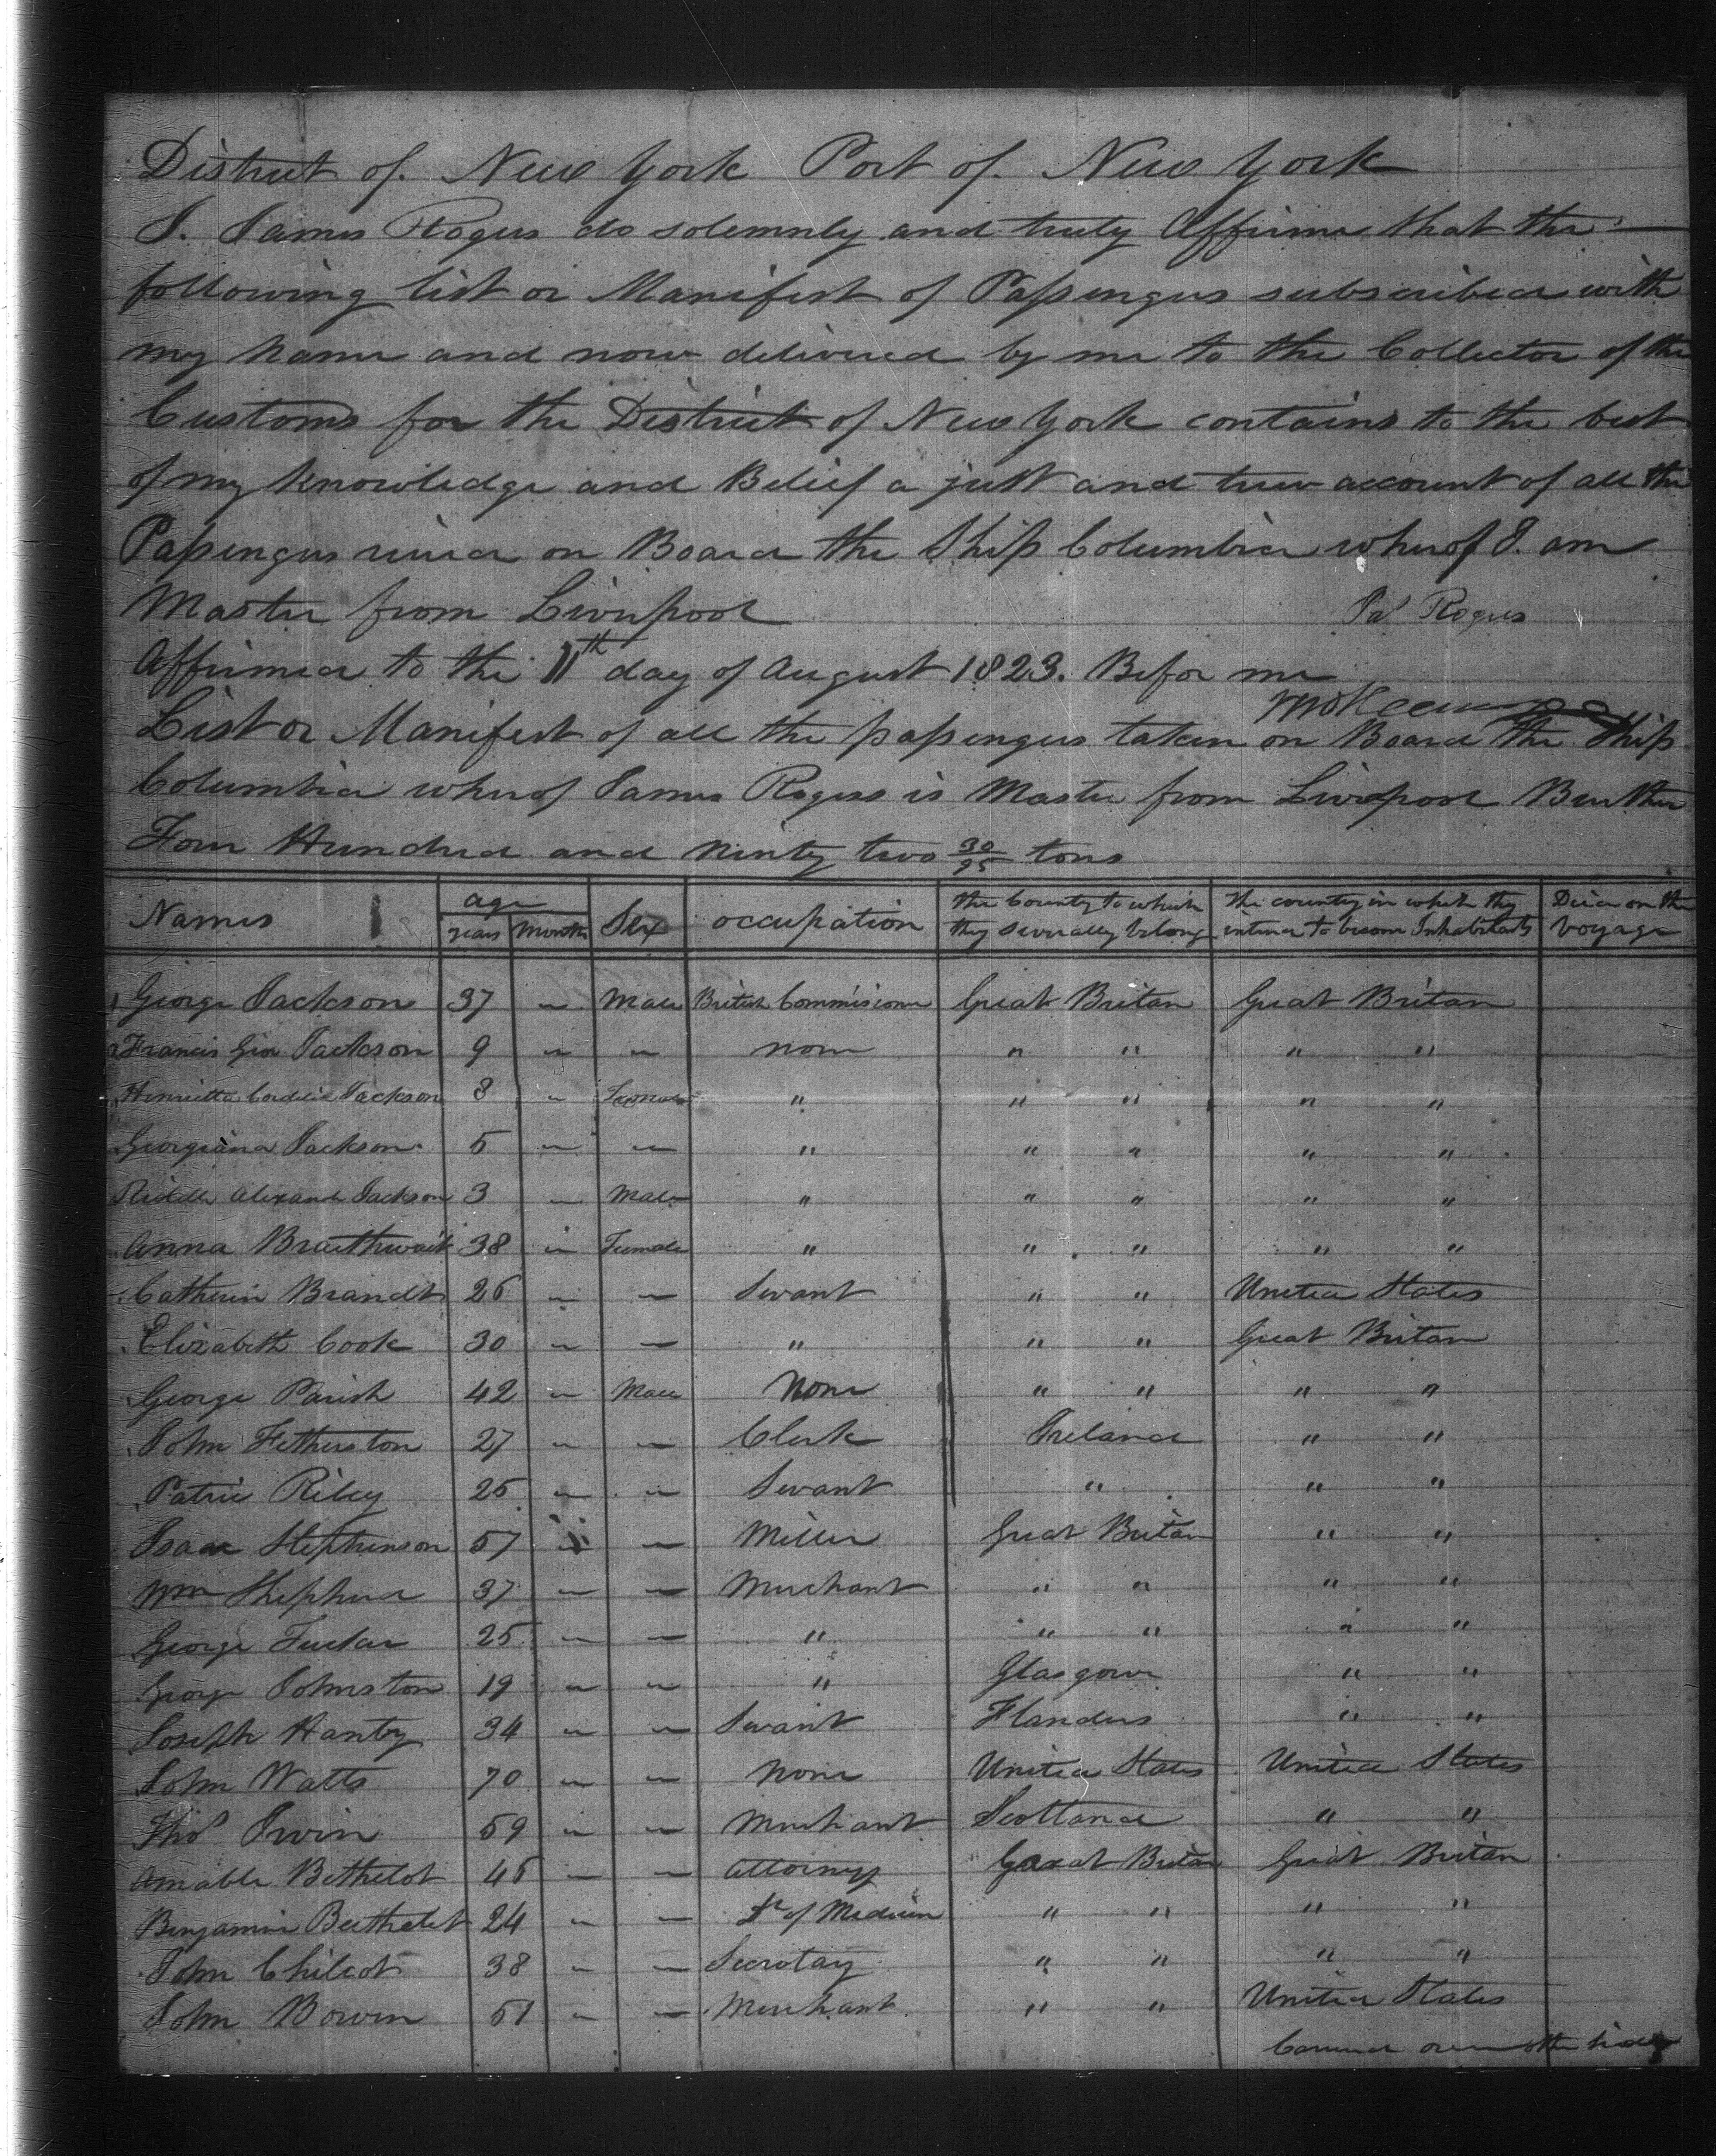 District of New York Port of New York
I. James Rogers do solemnly and truly Affirm that the
following list or Manifest of Passengers subscribed with
my name and now delivered by me to the Collector of the
Customs for the District of New York contains to the best
of my knowledge and Belief a just and true account of all the
Passengers on Board the Ship Columbia whereof I. am
Master from Liverpool Jas Rogers
Affirmed to the 11th day of August 1823. Before me
List or Manifest of all the passengers taken on Board the Ship
Columbia whereof James Rogers is Master from Liverpool Burthen
Four Hundred and Ninty two 30/95 tons
Names age years Months Sex occupation the Country to which they severally belong The country in which they intend to become Inhabitants Died on the voyage
George Jackson 37 " Male British Commissioner Great Britan Great Britan
Francis Geo Jackson 9 " " none " " " "
Henrietta Cordelia Jackson 8 " Female " " " " "
Georgiana Jackson 5 " " " " " " "
Riddle Alexand Jackson 3 " Male " " " " "
Anna Braithwait 38 " Female " " " " "
Catherin Brandt 26 " " Servant " " United States
Elizabeth Cook 30 " " " " " Great Britan
George Parish 42 " Male None " " " "
John Fetherston 27 " " Clerk Ireland " "
Patric Riley 25 " " Servant " " "
Isaac Stephenson 57 " " Miller Great Britan " "
Wm Shepherd 37 " " Merchant " " " "
George Tucker 25 " " " " " " "
George Johnston 19 " " " Glasgow " "
Joseph Hanty 34 " " Servant Flanders " "
John Watts 70 " " None United States United States
Thos Irvin 59 " " Merchant Scotland " "
Amable Bethelot 46 " " Attorney Great Britan Great Britan
Benjamin Berthelet 24 " " Dr of Medicin " " " "
John Chilcot 38 " " Secretary " " " "
John Bowen 51 " " Merchant " " United States
Carried over other side